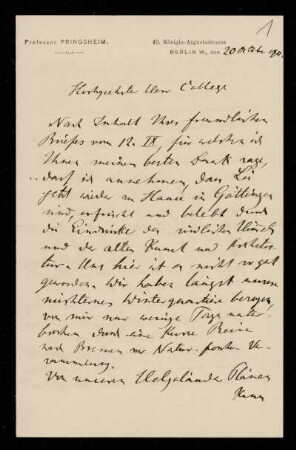 1
Professor PRINGSHEIM.
49. Königin-Augustastrasse
BERLIN W., den 20 Octbr 1890.
Hochgeehrter Herr College
Nach Inhalt Ihres freundlichen
Briefes vom 12. IX, für welchen ich
Ihnen meinen besten Dank sage,
darf ich annehmen, dass Sie
jetzt wieder zu Hause in Göttingen
sind, erfrischt und belebt durch
die Eindrücke des südlichen Himmels
und der alten Kunst und Architek-
tur. Uns hier ist es nicht so gut
geworden. Wir haben längst unsere
nüchternen Winterquartiere bezogen,
von mir nur wenige Tage unter-
brochen durch eine kurze Reise
nach Bremen zur Naturforscher Ver-
sammlung.
Von unseren Helgoländer Plänen